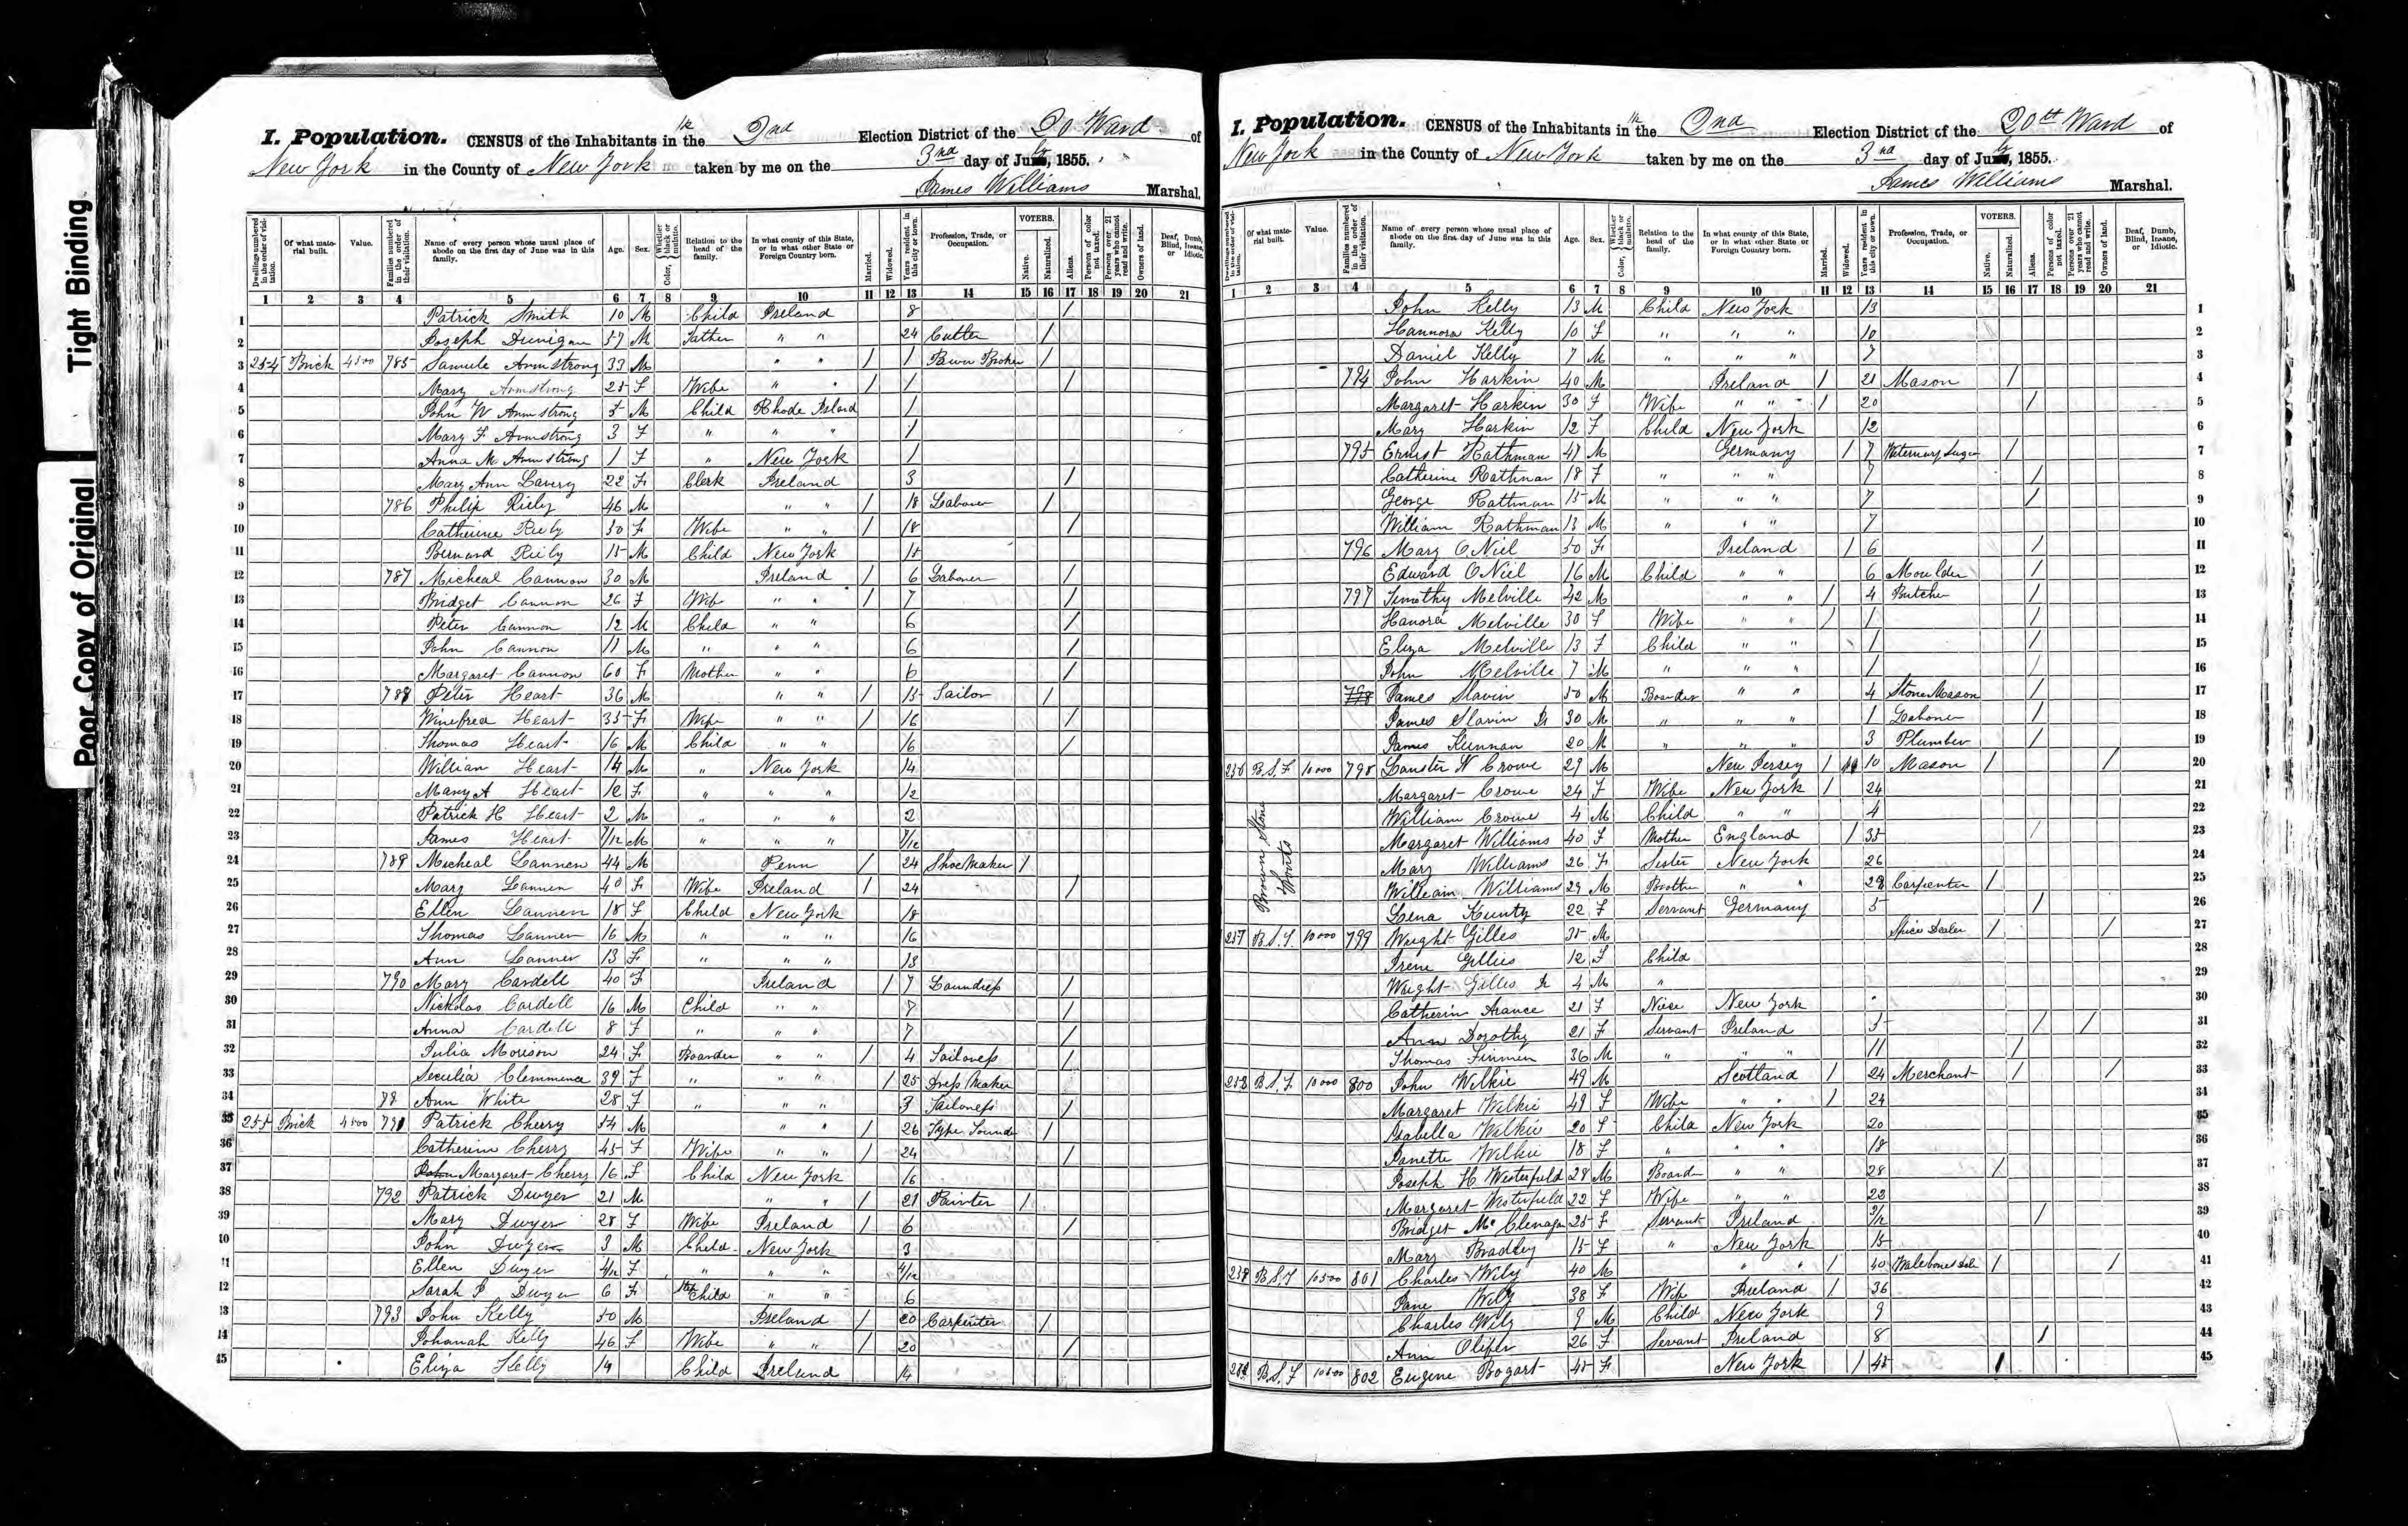 Tight Binding
Poor Copy of Original
I. Population. CENSUS of the Inhabitants in the 2nd Election District of the 20 Ward of
New York in the County of New York taken by me on the 3rd day of July, 1855.
James Williams Marshal.
Dwellings numbered in the order of visitation. Of what material built. Value. Families numbered in the order of their visitation. Name of every person whose usual place of abode on the first day of June was in this family. Age. Sex. Color, Whether black or mulatto. Relation to the head of the family. In what county of this State, or in what other State or Foreign Country born. Married. Widowed. Years resident in this city or town. Profession, Trade, or Occupation. VOTERS. Native. Naturalized. Aliens. Persons of color not taxed. Persons over 21 years who cannot read and write. Owners of land. Deaf, Dumb, Blind, Insane, or Idiotic.
1 2 3 4 5 6 7 8 9 10 11 12 13 14 15 16 17 18 19 20 21
1 Patrick Smith 10 M Child Ireland 8 /
2 Joseph Dunigan 57 M Father " " 24 Cutler /
3 254 Brick 4500 785 Samule Armstrong 33 M " " / 1 Pawn Broker /
4 Mary Armstrong 25 F Wife " " / 1 /
5 John W Armstrong 5 M Child Rhode Island 1
6 Mary F Armstrong 3 F " " " 1
7 Anna M Armstrong 1 F " New York 1
8 Mary Ann Lavery 22 F Clerk Ireland 3 /
9 786 Philip Riely 46 M " " / 18 Laborer /
10 Catherine Riely 30 F Wife " " / 18 /
11 Bernard Riely 15 M Child New York 15
12 787 Micheal Cannon 30 M Ireland / 6 Laborer /
13 Bridget Cannon 26 F Wife " " / 7 /
14 Peter Cannon 12 M Child " " 6 /
15 John Cannon 11 M " " " 6 /
16 Margaret Cannon 60 F Mother " " 6 /
17 788 Peter Heart 36 M " " / 15 Sailor /
18 Winefred Heart 35 F Wife " " / 16 /
19 Thomas Heart 16 M Child " " 16 /
20 William Heart 14 M " New York 14
21 Mary A Heart 12 F " " " 12
22 Patrick H Heart 2 M " " " 2
23 James Heart 7/12 M " " " 7/12
24 789 Micheal Lannen 44 M Penn / 24 Shoe Maker /
25 Mary Lannen 40 F Wife Ireland / 24 /
26 Ellen Lannen 18 F Child New York 18
27 Thomas Lannen 16 M " " " 16
28 Ann Lannen 13 F " " " 13
29 790 Mary Cardell 40 F Ireland / 7 Laundress /
30 Nickolas Cardell 16 M Child " " 7 /
31 Anna Cardell 8 F " " " 7 /
32 Julia Morison 24 F Boarder " " / 4 Tailoress /
33 Seculia Clemmence 39 F " " " / 25 Dress Maker
34 Ann White 28 F " " " 3 Tailoress /
35 255 Brick 4500 791 Patrick Cherry 54 M " " / 26 Type Founder /
36 Catherine Cherry 45 F Wife " " / 24 /
37 Margaret Cherry 16 F Child New York 16
38 792 Patrick Dwyer 21 M " " / 21 Painter /
39 Mary Dwyer 28 F Wife Ireland / 6 /
10 John Dwyer 3 M Child New York 3
11 Ellen Dwyer 4/12 F " " " 4/12
12 Sarah Dwyer 6 F Child " " 6
13 793 John Kelly 50 M Ireland / 20 Carpenter /
14 Johanah Kelly 46 F Wife " " / 20 /
45 Eliza Kelly 14 Child Ireland 14
I. Population. CENSUS of the Inhabitants in the 2nd Election District of the 20th Ward of
New York in the County of New York taken by me on the 3rd day of July, 1855.
James Williams Marshal.
Dwellings numbered in the order of visitation. Of what material built. Value. Families numbered in the order of their visitation. Name of every person whose usual place of abode on the first day of June was in this family. Age. Sex. Color, Whether black or mulatto. Relation to the head of the family. In what county of this State, or in what other State or Foreign Country born. Married. Widowed. Years resident in this city or town. Profession, Trade, or Occupation. VOTERS. Native. Naturalized. Aliens. Persons of color not taxed. Persons over 21 years who cannot read and write. Owners of land. Deaf, Dumb, Blind, Insane, or Idiotic.
1 2 3 4 5 6 7 8 9 10 11 12 13 14 15 16 17 18 19 20 21
John Kelly 13 M Child New York 13 1
Hannora Kelly 10 F " " " 10 2
Daniel Kelly 7 M " " " 7 3
794 John Harkin 40 M Ireland / 21 Mason / 4
Margaret Harkin 30 F Wife " " / 20 / 5
Mary Harkin 12 F Child New York 12 6
795 Ernst Rathman 47 M Germany / 7 / 7
Catherine Rathman 18 F " " " 7 / 8
George Rathman 15 M " " " 7 / 9
William Rathman 13 M " " " 7 10
796 Mary O Niel 50 F Ireland / 6 / 11
Edward O Niel 16 M Child " " 6 Moulder / 12
797 Timothy Melville 42 M " " / 4 Butcher / 13
Hanora Melville 30 F Wife " " / 1 / 14
Eliza Melville 13 F Child " " 1 / 15
John Melville 7 M " " " 1 / 16
798 James Slavin 50 M Boarder " " 4 Stone Mason / 17
James Slavin Jr 30 M " " " 1 Laborer / 18
James Kennan 20 M " " " 3 Plumber / 19
256 B.S.F 10000 798 W Crowe 29 M New Jersey / 10 Mason / / 20
Margaret Crowe 24 F Wife New York / 24 21
William Crowe 4 M Child " " 4 22
Margaret Williams 40 F Mother England / 35 / 23
Mary Williams 26 F Sister New York 26 24
William Williams 29 M Brother " " 29 Carpenter / 25
Brown Stone Fronts
Lena Kuntz 22 F Servant Germany 5 / 26
257 B.S.F. 10000 799 Wright Gilles 35 M Spice Dealer / / 27
Irene Gilles 12 F Child 28
Wright Gilles Jr 4 M " 29
Catherin 21 F Niese New York 30
Ann Dorothy 21 F Servant Ireland 5 / / 31
Thomas Finnen 36 M " " " 11 / 32
258 B.S.F. 10000 800 John Wilkie 49 M Scotland / 24 Merchant / / 33
Margaret Wilkie 49 F Wife " " / 24 34
Isabella Wilkie 20 F Child New York 20 35
Janette Wilkie 18 F " " " 18 36
Joseph H Westerfield 28 M Boarder " " 28 / 37
Margaret Westerfield 22 F Wife " " 22 38
Bridget Mc Clenagan 25 F Servant Ireland 9/12 / 39
Mary Bradley 15 F " New York 15 40
B.S.F 10500 801 Charles Wily 40 M " " / 40 / / 41
Jane Wily 38 F Wife Ireland / 36 42
Charles Wily 9 M Child New York 9 43
Ann Olifer 26 F Servant Ireland 8 / 44
B.S.F 10500 802 Eugene Bogart 45 F New York / 45 / 45